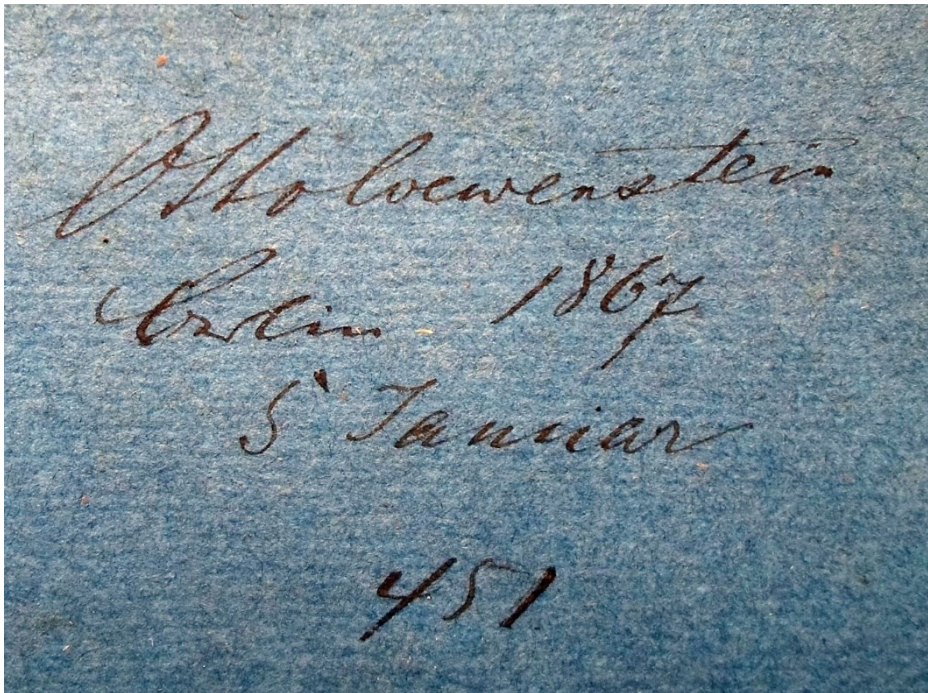 Otto Loewenstein
Berlin 1867
5 Januar
451